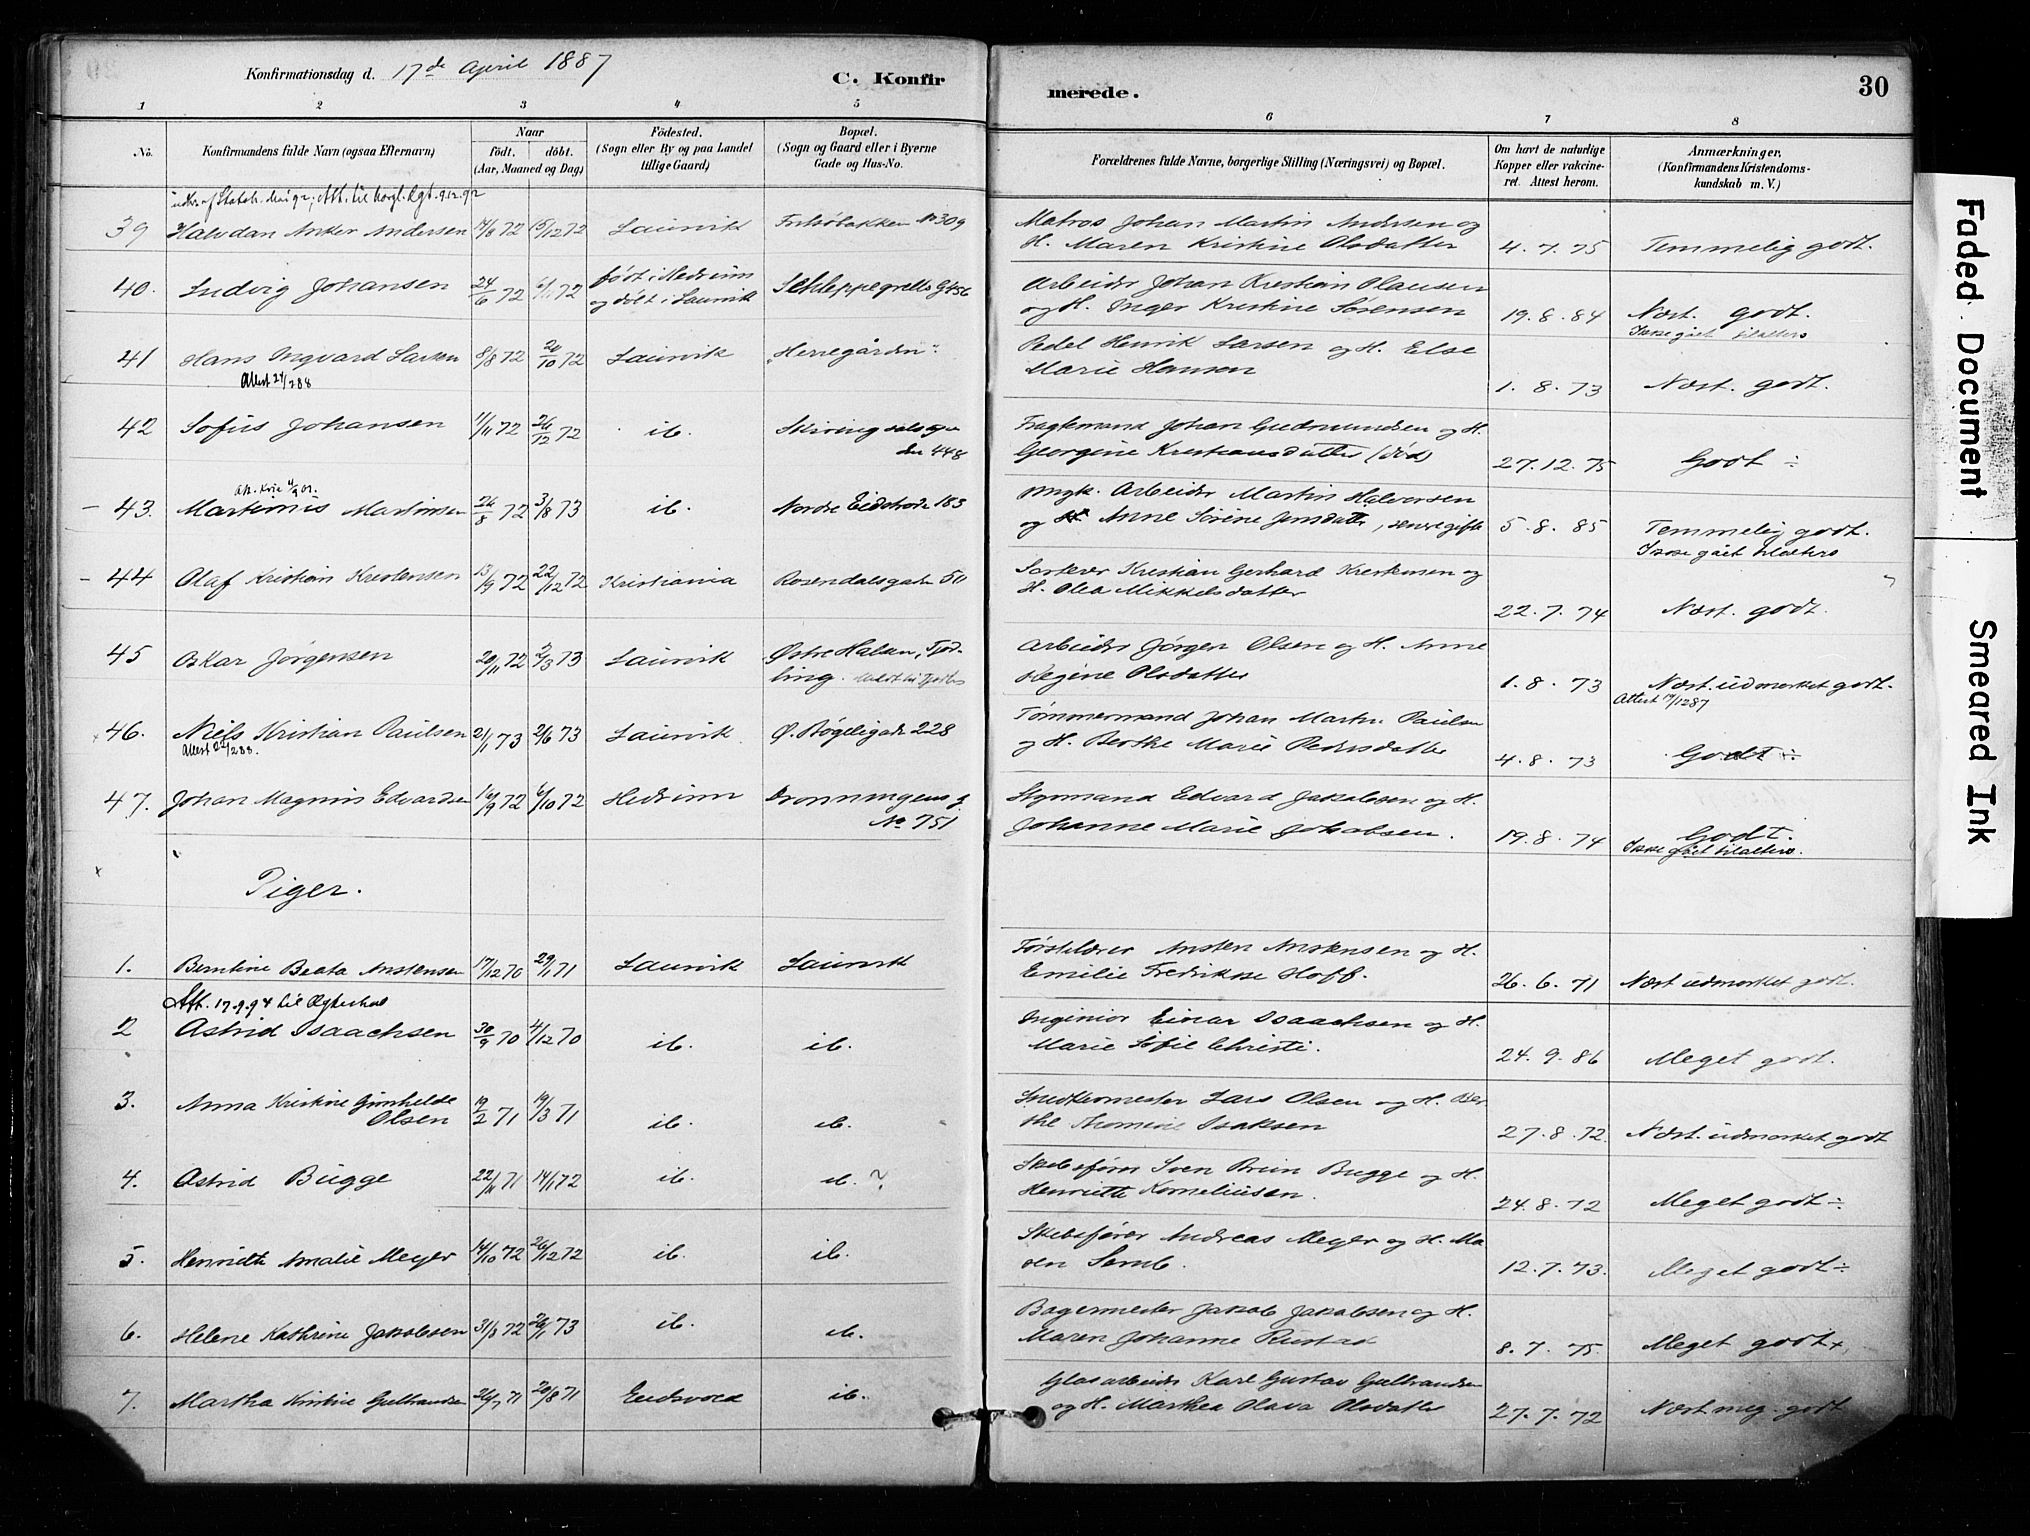 Konfirmationsdag d. 17de April 1887
C. Konfirmerede.
30
1 2 3 4 5 6 7 8
No.
Konfirmandens fulde Navn (ogsaa Efternavn)
Naar
födt. döbt.
(Aar, Maaned og Dag)
Födested.
(Sogn eller By og paa Landet
tillige Gaard)
Bopæl.
(Sogn og Gaard eller i Byerne
Gade og Hus-No.
Forældrenes fulde Navne, borgerlige Stilling (Næringsvei) og Bopæl.
Om havt de naturlige
Kopper eller vakcine-
ret. Attest herom.
Anmærkninger,
(Konfirmandens Kristendoms-
kundskab m. V.)
39 Halvdan Anker Andersen 72 15/12 72 Laurvik No 309
Matros Johan Martin Andersen og
H. Maren Kristine Olsdatter 4.7.75 Temmelig godt.
40. Ludvig Johansen 24/6 72 6/11 72 født i Hedrum
og døbt i Laurvik Schleppegrells G 456
Arbeider Johan Kristian Olausen
og H. Inger Kristine Sørensen 19.8.84 Næst. godt.
Ikke gået tilalters
41 Hans Ingvard Larsen 8/8 72 20/10 72 Laurvik "Herregården".
Attest 24/2 88
Pedel Henrik Larsen og H. Else
Marie Hansen 1.8.73 Næst. godt.
42 Sofus Johansen 11/11 72 26/12 72 ib. 448
Fragtemand Johan Gudmundsen og H.
Georgine Kristiansdatter (død) 27.12.75 Godt ÷
- 43. Martinius Martinsen 26/8 72 3/8 73 ib. Nordre 183
Ungk. Arbeider Martin Halvorsen
og Anne Sørine Jensdatter, senere gifte 5.8.85 Temmelig godt.
Ikke gået tilalters
- 44 Olaf Kristian Kristensen 13/9 72 22/12 72 Kristiania Rosendalsgade 511
Kristian Gerhard Kristensen og
H. Olea Mikkelsdatter 22.7.74 Næst. godt.
45 Oskar Jørgensen 20/11 72 2/3 73 Laurvik Østre Halsen, Tjød-
ling.
Arbeider Jørgen Olsen og H. Anne
Regine Olsdatter 1.8.73 Næst. udmærket godt.
Attest 17/12 87
46. Niels Kristian Paulsen 2/1 73 2/6 73 Laurvik Ø. Bøgeligade 228
Attest 22/2 88.
Tømmermand Johan Martin Paulsen
og H. Berthe Marie Pedersdatter 4.8.73 Godt ÷
47. Johan Magnus Edvardsen 16/9 72 6/10 72 Hedrum Dronningens g.
No 751
Styrmand Edvard Jakobsen og H.
Johanne Marie Jakobsen. 19.8.74 Godt.
Ikke gået tilalters.
Piger.
1. Berntine Beata Anstensen 17/12 70 29/1 71 Laurvik Laurvik
Ansten Anstensen og H.
Emilie Fredrikke Hoff. 26.6.71 Næst udmærket godt.
Att. 17.9.94 til Ægteskab
2 Astrid Isaachsen 30/9 70 4/12 70 ib. ib.
Ingeniør Einar Isaachsen og H.
Marie Sofie Christi. 24.9.86 Meget godt.
3. Anna Kristine Gunhelde
Olsen 19/2 71 19/3 71 ib. ib.
Snedkermester Lars Olsen og H. Ber
the Isaksen 27.8.72. Næst. udmærket godt
4. Astrid Bugge 22/11 71 14/1 72 ib. ib. ?
Skibsfører Sven Brun Bugge og H.
Henriette Korneliusen. 24.8.72 Meget godt ÷
5. Henriette Amalie Meyer 14/10 72 26/12 72 ib. ib.
Skibsfører Andreas Meyer og H. Ma
ren Semb. 12.7.73. Meget godt ÷
6. Helene Kathrine Jakobsen 31/8 72 26/1 73 ib. ib.
Bagermester Jakob Jakobsen og H.
Maren Johanne Rustad 8.7.75. Meget godt +
7. Martha Kirstine Gulbrandsen 26/7 71 20/8 71 Eidsvold ib.
Glasarbeider Karl Gustav Gulbrandsen
og H. Marthea Olava Olsdatter 27.7.72 Næst meg. godt
Faded Document
Smeared Ink